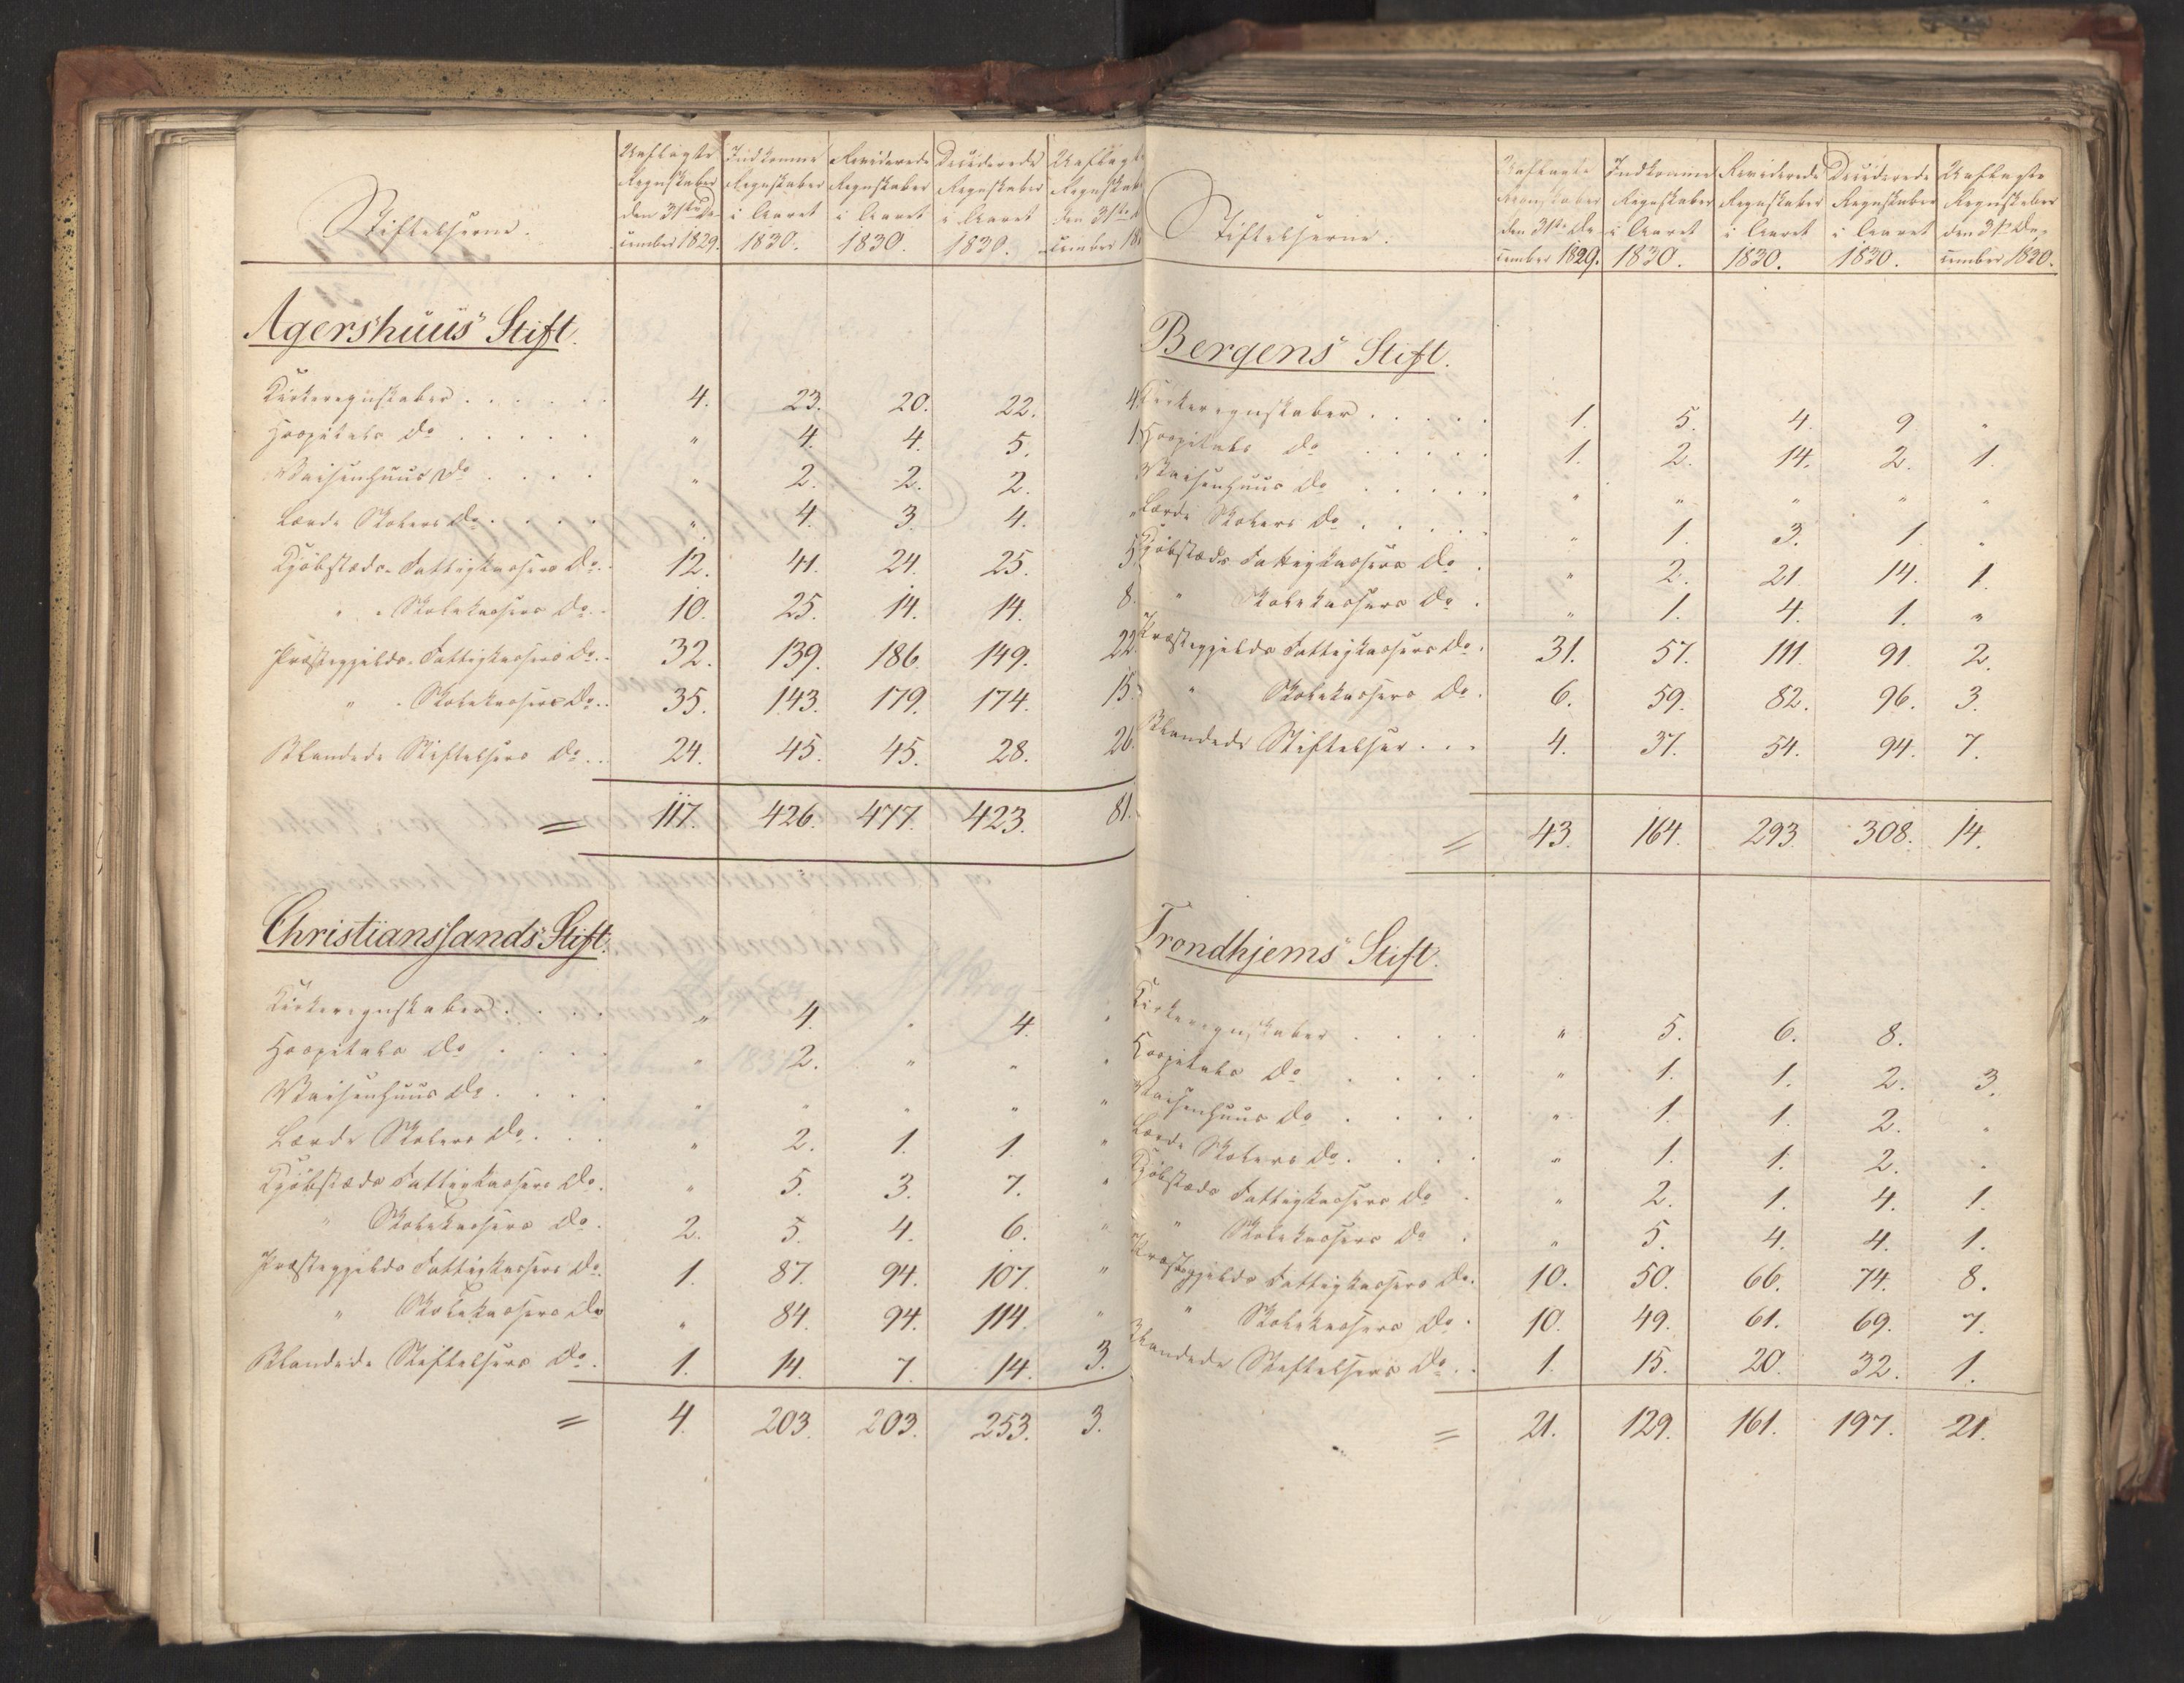 Stiftelserne.
Uaflagte Regnskaber den 31te December 1829.
Indkomne Regnskaber i Aaret 1830.
Reviderede Regnskaber i Aaret 1830.
Deciderede Regnskaber i Aaret 1830.
Uaflagte Regnskab den 31te cember 18
Agershuus Stift.
Kirkeregnskaber . . . . . 4. 23. 20. 22. 4.
Hospitals do . . . . . " 4. 4. 5. 1.
Waisenhuus do . . . . " 2. 2. 2.
Lærde Skolers do . . . . " 4. 3. 4. "
Kjöbstæds-Fattigkassers do. 12. 41. 24. 25. 5.
" " Skolekassers do. . 10. 25. 14. 14. 8.
Præstegjelds-Fattigkassers do. . 32. 139. 186. 149. 22.
" " Skolekassers do. . 35. 143. 179. 174. 15.
Blandede Stiftelsers do. . . 24. 45. 45. 28. 26.
= 117. 426. 477. 423. 81.
Christianssands Stift.
Kirkeregnskaber . . . . " 4. " 4. "
Hospitals do . . . . " 2. " " "
Waisenhuus do . . . . " " " " "
Lærde Skolers do . . . " 2. 1. 1. "
Kjöbstæds Fattigkassers do. " 5. 3. 7. "
" Skolekassers do. 2. 5. 4. 6. "
Præstegjelds Fattigkassers do. 1. 87. 94. 107. "
" Skolekassers do " 84. 94. 114. "
Blandede Stiftelsers do. 1. 14. 7. 14. 3.
= 4. 203. 203. 253. 3.
Stiftelserne.
Uaflagte Regnskaber den 31te December 1829.
Indkomne Regnskaber i Aaret 1830.
Reviderede Regnskaber i Aaret 1830.
Deciderede Regnskaber i Aaret 1830.
Uaflagte Regnskaber den 31te December 1830.
Bergens Stift.
Kirkeregnskaber . . . . . 1. 5. 4. 9 "
Hospitals do . . . . . 1. 2. 14. 2. 1.
Waisenhuus do . . . . . " " " " "
Lærde Skolers do . . . . . " 1. 3. 1. "
Kjöbstæds Fattigkassers do . " 2. 21. 14. 1.
" Skolekassers do . " 1. 4. 1. "
Præstegjelds Fattigkassers do . 31. 57. 111. 91. 2.
" Skolekassers do . 6. 59. 82. 96. 3.
Blandede Stiftelser . . . 4. 37. 54. 94. 7.
= 43. 164. 293. 308. 14.
Trondhjems Stift.
Kirkeregnskaber . . . . " 5. 6. 8.
Hospitals do . . . . " 1. 1. 2. 3.
Waisenhuus do . . . . " 1. 1. 2. "
Lærde Skolers do . . . . " 1. 1. 2. "
Kjöbstæds Fattigkassers do . " 2. 1. 4. 1.
" Skolekassers do . " 5. 4. 4. 1.
Præstegjelds Fattigkassers do. 10. 50. 66. 74. 8.
" Skolekassers do . 10. 49. 61. 69. 7.
Blandede Stiftelsers do . . 1. 15. 20. 32. 1.
= 21. 129. 161. 197. 21.